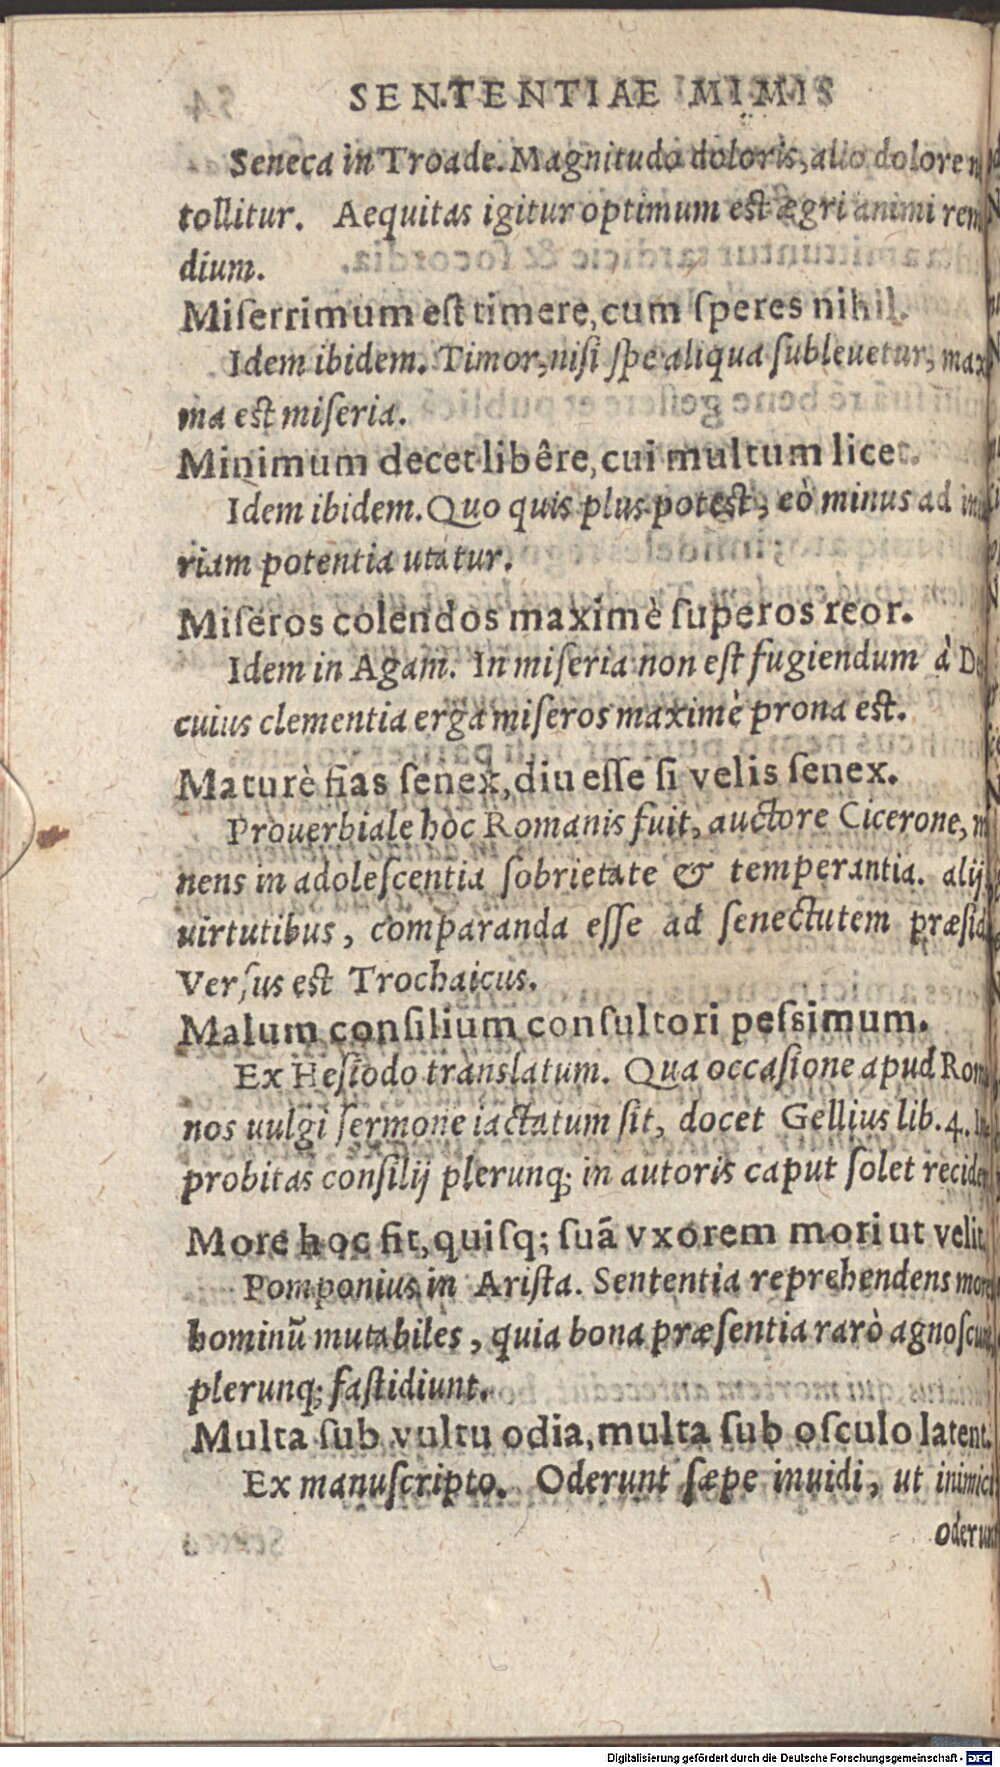 SENTENTIAE MIMIS
Seneca in Troade. Magnitudo doloris, alio dolore
tollitur. Aequitas igitur optimum est ægri animi
dium.
Miſerrimum eſt timere, cum ſperes nihil.
Idem ibidem. Timor, niſi ſpe aliqua ſubleuetur,
ma eſt miſeria.
Minimum decet libêre, cui multum licet.
Idem ibidem. Quo quis plus poteſt, eò minus ad
riam potentia utatur.
Miſeros colendos maximè ſuperos reor.
Idem in Agam. In miſeria non eſt fugiendum à
cuius clementia erga miſeros maximè prona eſt.
Maturè fias ſenex, diu eſſe ſi velis ſenex.
Prouerbiale hoc Romanis fuit, auctore Cicerone,
nens in adoleſcentia ſobrietate & temperantia. alij
uirtutibus, comparanda eſſe ad ſenectutem
Verſus eſt Trochaicus.
Malum conſilium conſultori peſsimum.
Ex Heſiodo translatum. Qua occaſione apud
nos uulgi ſermone iactatum ſit, docet Gellius lib. 4.
probitas conſilij plerunq; in autoris caput ſolet
More hoc fit, quiſq; ſuã vxorem mori ut velit.
Pomponius in Ariſta. Sententia reprehendens
hominũ mutabiles, quia bona præſentia rarò
plerunq; faſtidiunt.
Multa ſub vultu odia, multa ſub oſculo latent.
Ex manuſcripto. Oderunt ſæpe inuidi, ut inimici
Digitalisierung gefördert durch die Deutsche Forschungsgemeinschaft - DFG